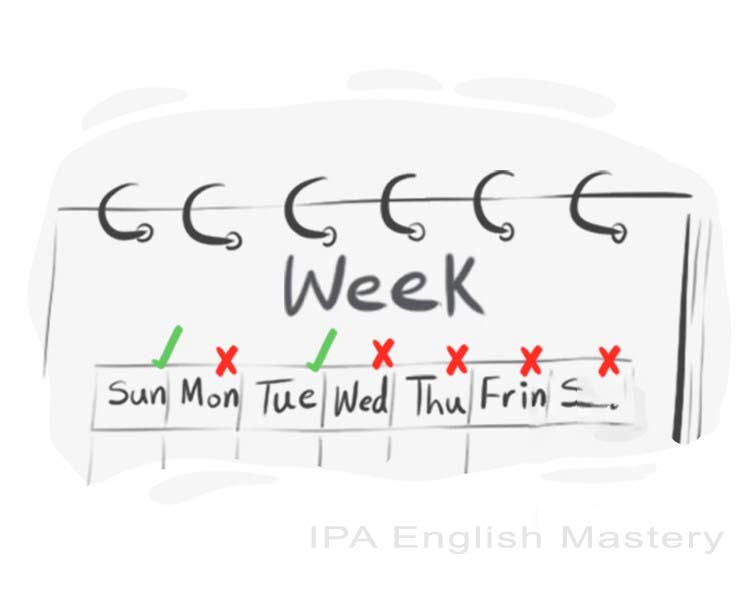 Week
Sun Mon Tue Wed Thu Frin S__.
IPA English Mastery